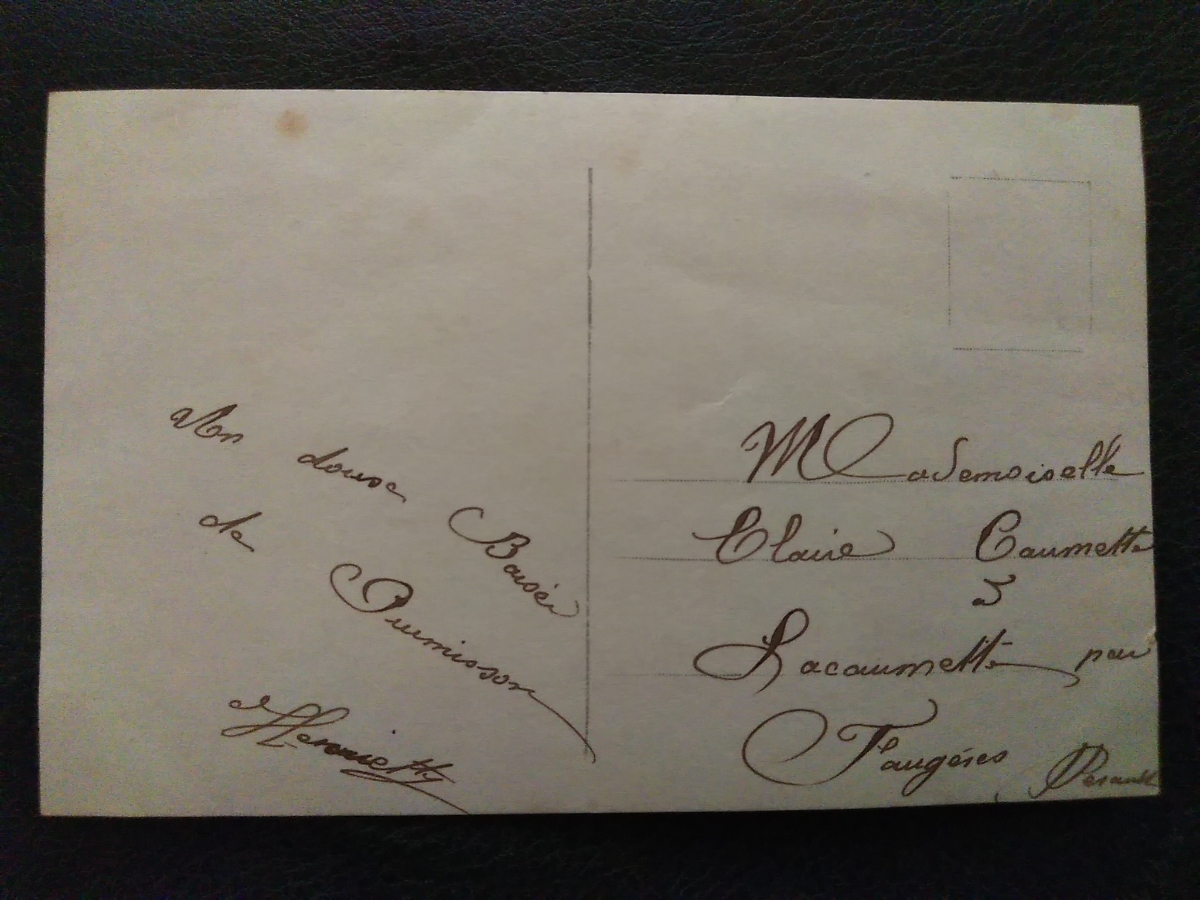 Un doux Baiser
de Puimisson
Henriette
Mademoiselle
Claire Caumette
à
Lacaumette par
Faugères Hérault